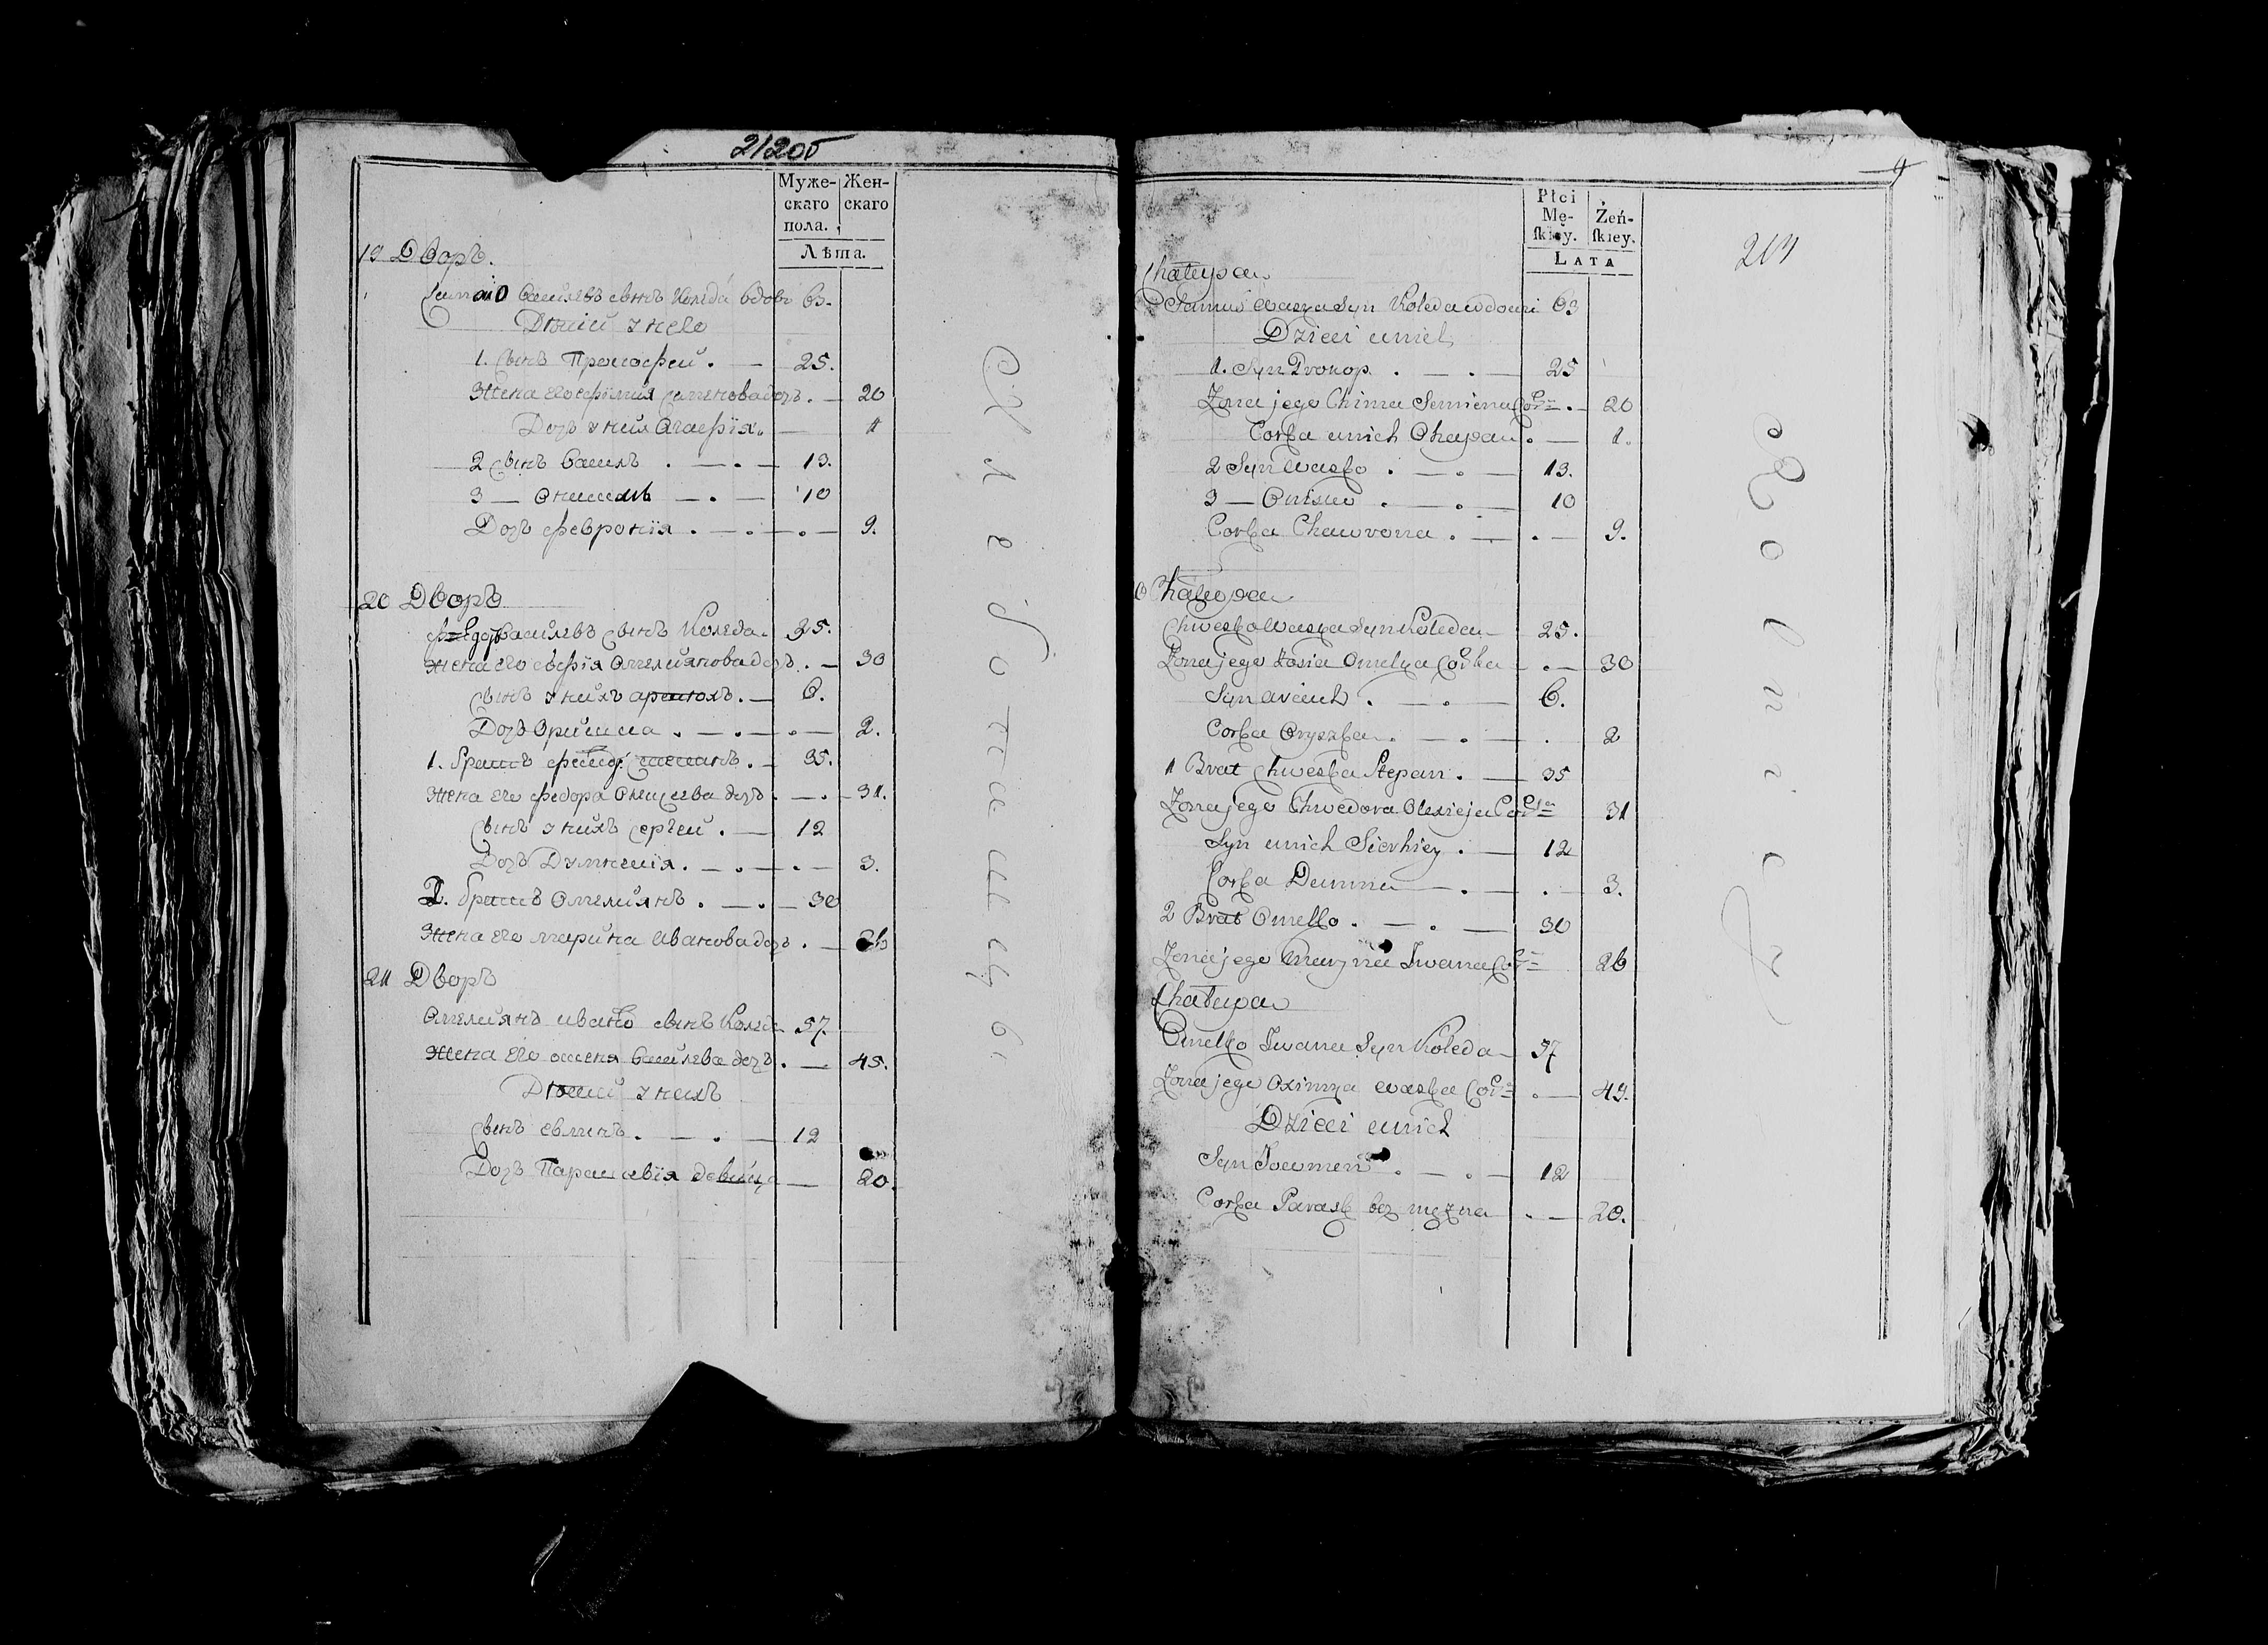 212об
Муже-
скаго
пола.
Жен-
скаго
Лѣта.
19 Дворъ.
Василевъ сынъ Коледа вдовъ 63.
Дѣти у него
1. Сынъ Прокофей . — 25.
Жена его Семенова дочь . — 20
Дочь у них Агафія . — 1
2 сынъ Василь . — . — 13.
3 — Онисимъ — . — 10
Дочь Февронія . — . — . — 9.
20 Дворъ
Василевъ сынъ Коледа 25.
Жена его Софія Омелиянова дочь . — 30
сынъ у нихъ . — 6.
Дочь Оришка . — . — . — 2.
1. братъ . — 35.
Жена его Федора Олексеева дочь . — . — 31.
Сынъ у нихъ Сергей . — 12
Дочь . — . — . — 3.
2. братъ Омелиянъ . — . — 30
Жена его Марина Иванова дочь . — 26
21 Дворъ
Омелиянъ Ивановъ сынъ Коледа 57.
Жена его Василева дочь . — 45.
Дѣти у нихъ
сынъ . — . — 12
Дочь Параскевія девица — 20.
Хлеботашцы
Płci
Mę-
skiey.
Żeń-
skiey.
LATA
213
Chałupa
Wasza Syn Koleda wdowi 63
Dzieci u nieh
1. Syn Prokop . — . — 25
Żona jego Chima Semiena Cor= . — 20
Corka u nich Ohapa . — 1.
2 Syn Wasko . — . — 13.
3 — Onisko . — . — 10
Corka Chawrona . — . — 9.
Chałupa
Chwesko Waska Syn Koleda — 25.
Żona jego Zosia Omelka Corka — . — 30
Syn . — . — 6.
Corka Oryszka . — . — . 2
1 Brat Chweska Stepan . — 35
Żona jego Chwedora Olexieja Cor= 31
Syn u nich Sierhiey . — 12
Corka Dumna — . — . — 3.
2 Brat Omelko . — . — 30
Żona jego Maryna Iwana Cor= 26
Chałupa
Omelko Iwana Syn Koleda — 57
Żona jego Oximya Waska Cor= . — 45.
Dzieci u nich
Syn . — . — 12
Corka Parask bez mężna . — 20.
Rolnicy